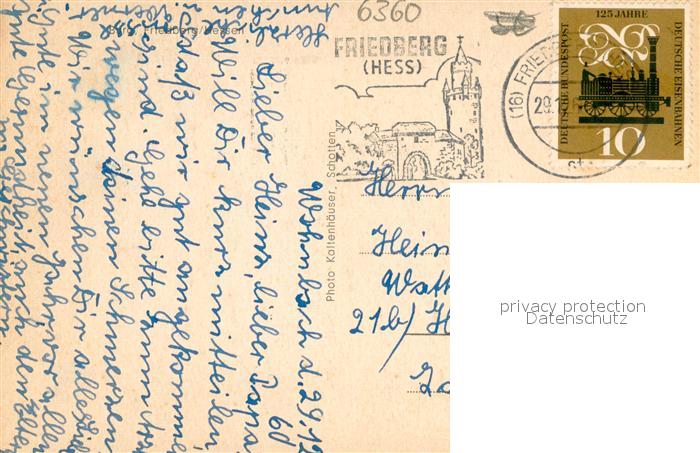 6360
Burg Friedberg/Hessen
FRIEDBERG
(HESS)
(16) FRIEDB
29.
125 JAHRE
DEUTSCHE BUNDESPOST
DEUTSCHE EISENBAHNEN
10
Photo Kaltenhäuser, Schotten
Wohnbach d. 29.12
60
Lieber Heinz, lieber Papa
Will Dir kurz mitteilen,
daß wir gut angekommen
sind. Gehe bitte zum Arzt
wegen Deinen Schmerzen
Wir wünschen Dir alles
Gute im neuen Jahr vor allem
gute Gesundheit auch den
Herrn
Hein
Watt
21b) H
privacy protection
Datenschutz